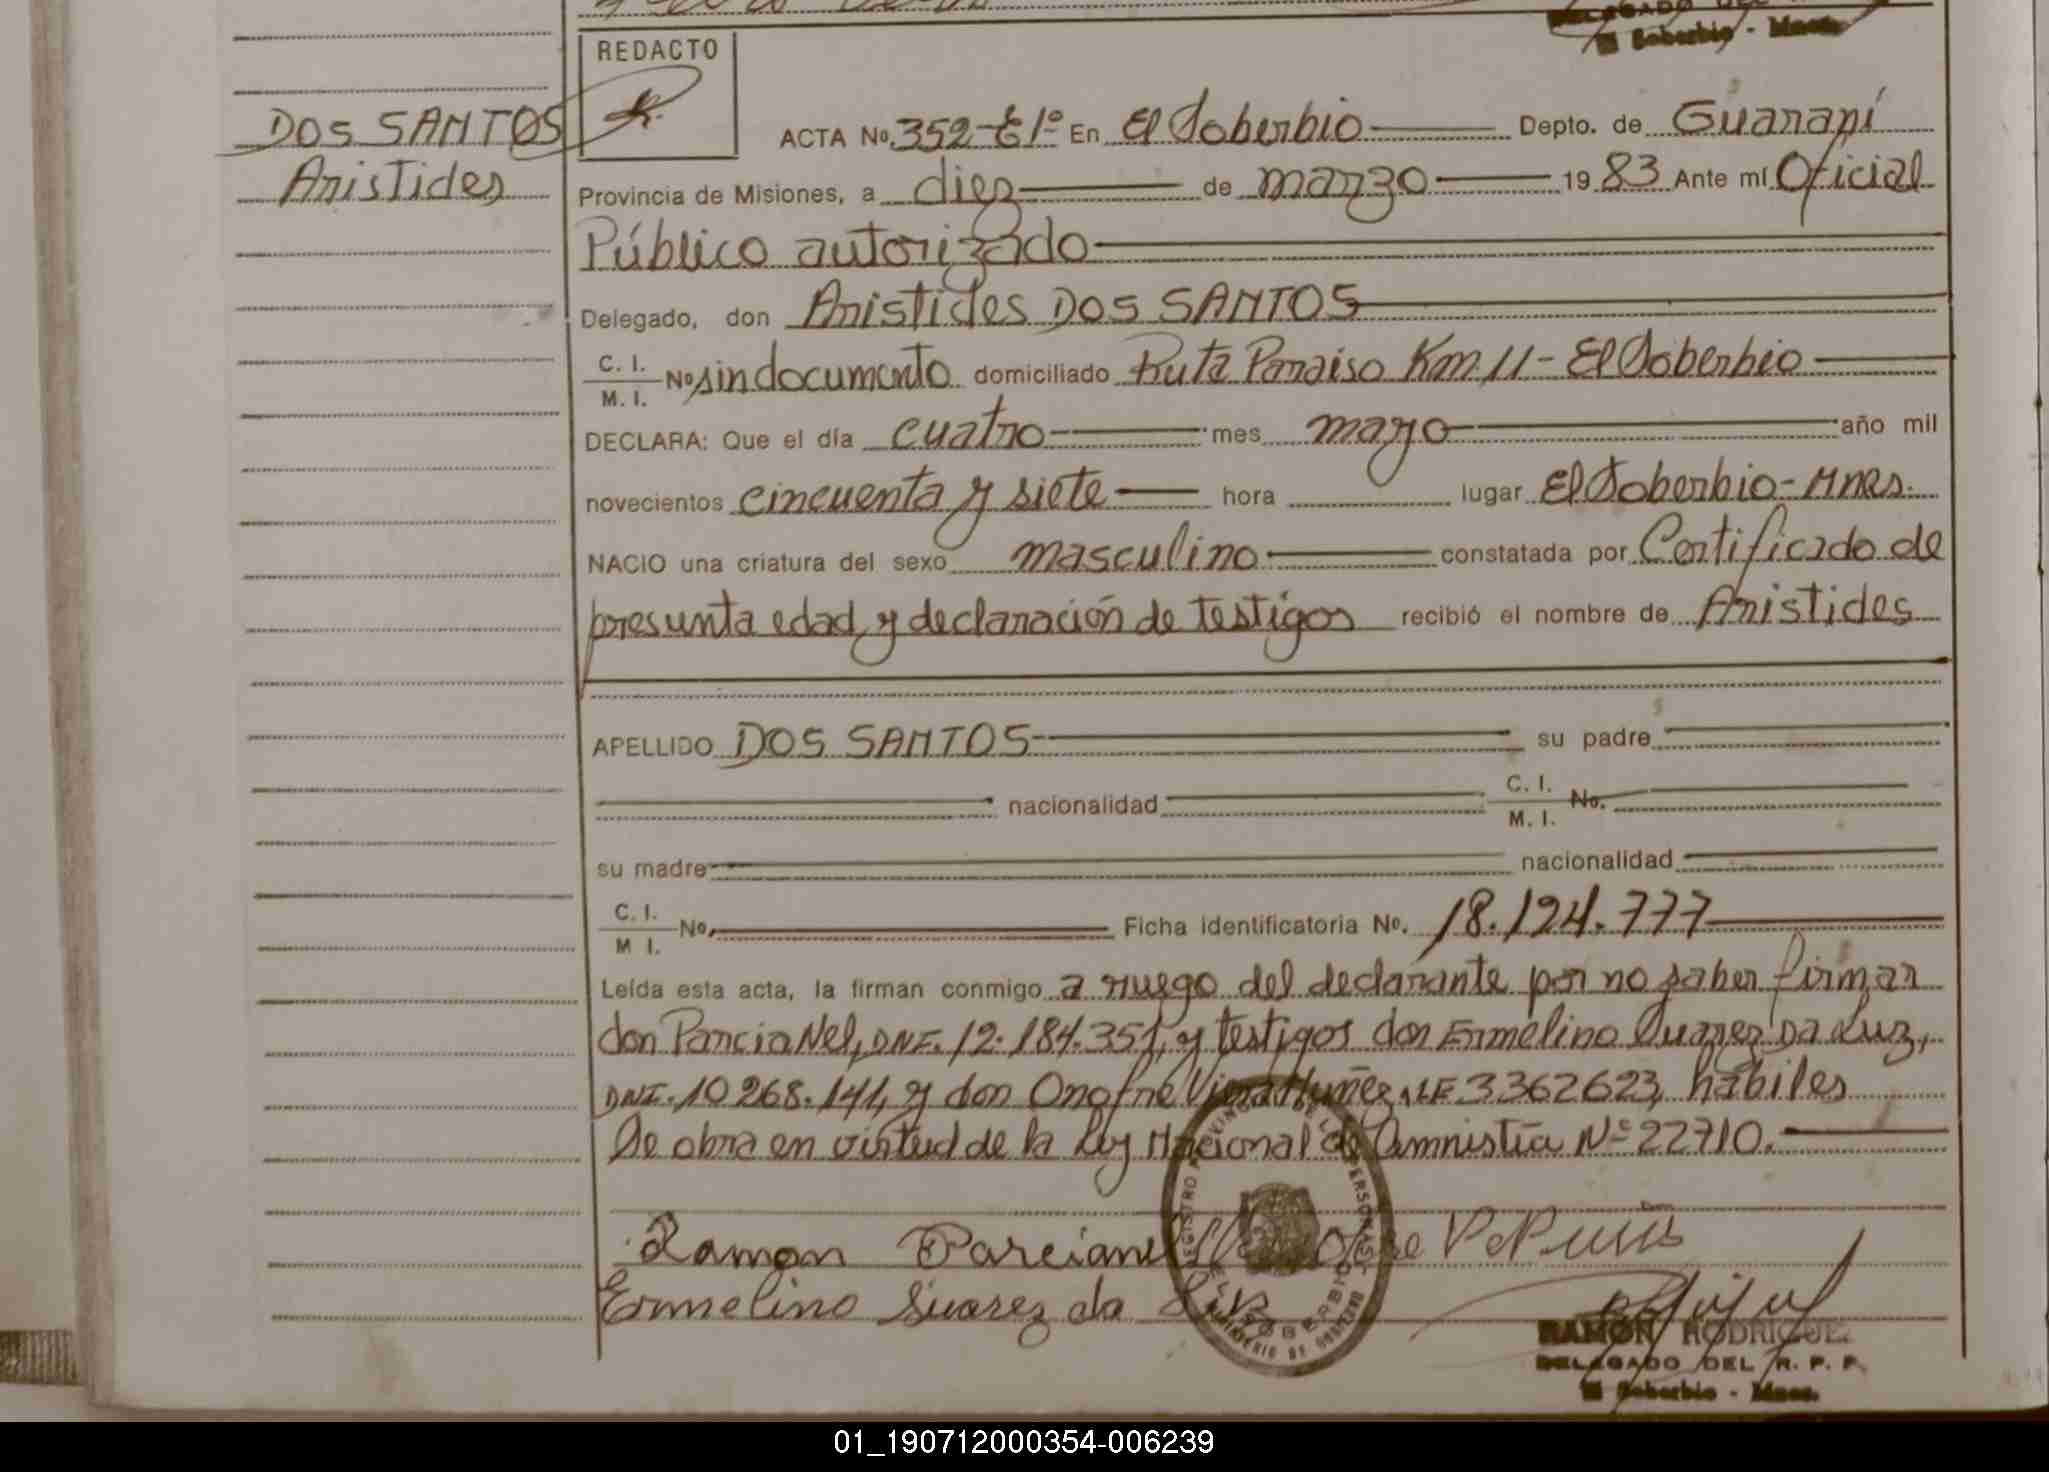 DELEGADO DEL
El Soberbio - Mnes.
REDACTO
DOS SANTOS
Aristides
ACTA No. 352-E1º En El Soberbio Depto. de Guaraní
Provincia de Misiones, a diez de marzo 1983 Ante mí Oficial
Público autorizado
Delegado, don Aristides DOS SANTOS
C. I.
M. I. No sin documento domiciliado Ruta Paraiso Km. 11 - El Soberbio
DECLARA: Que el día cuatro mes mayo año mil
novecientos cincuenta y siete hora lugar El Soberbio - Mnes.
NACIO una criatura del sexo masculino constatada por Certificado de
presunta edad, y declaración de testigos recibió el nombre de Aristides
APELLIDO DOS SANTOS su padre
nacionalidad C. I. M. I. No.
su madre nacionalidad
C. I. M I. No. Ficha identificatoria No. 18.124.777
Leída esta acta, la firman conmigo a ruego del declarante por no saber firmar
don Parcia Nel, DNI. 12.184.351, y testigos don Ermelino Suarez Da Luz,
DNI. 10268.141, y don Onofre LE 3362623, hábiles
De obra en virtud de la Ley Nacional de Amnistía Nº 22710.
Ramon Parcianel
Ermelino Suarez da Luz
REGISTRO PROVINCIAL DE LAS PERSONAS
EL SOBERBIO
MINISTERIO DE GOBIERNO
RAMON RODRIGUEZ
DELEGADO DEL R. P. P.
El Soberbio - Mnes.
01_190712000354-006239